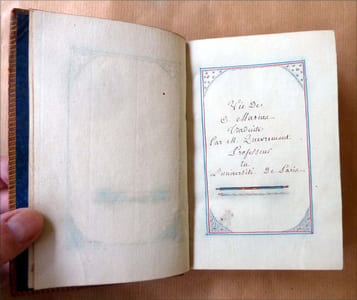 Vie De
C. Marius
Traduite
Par M.
Professeur
en
L'université De Paris